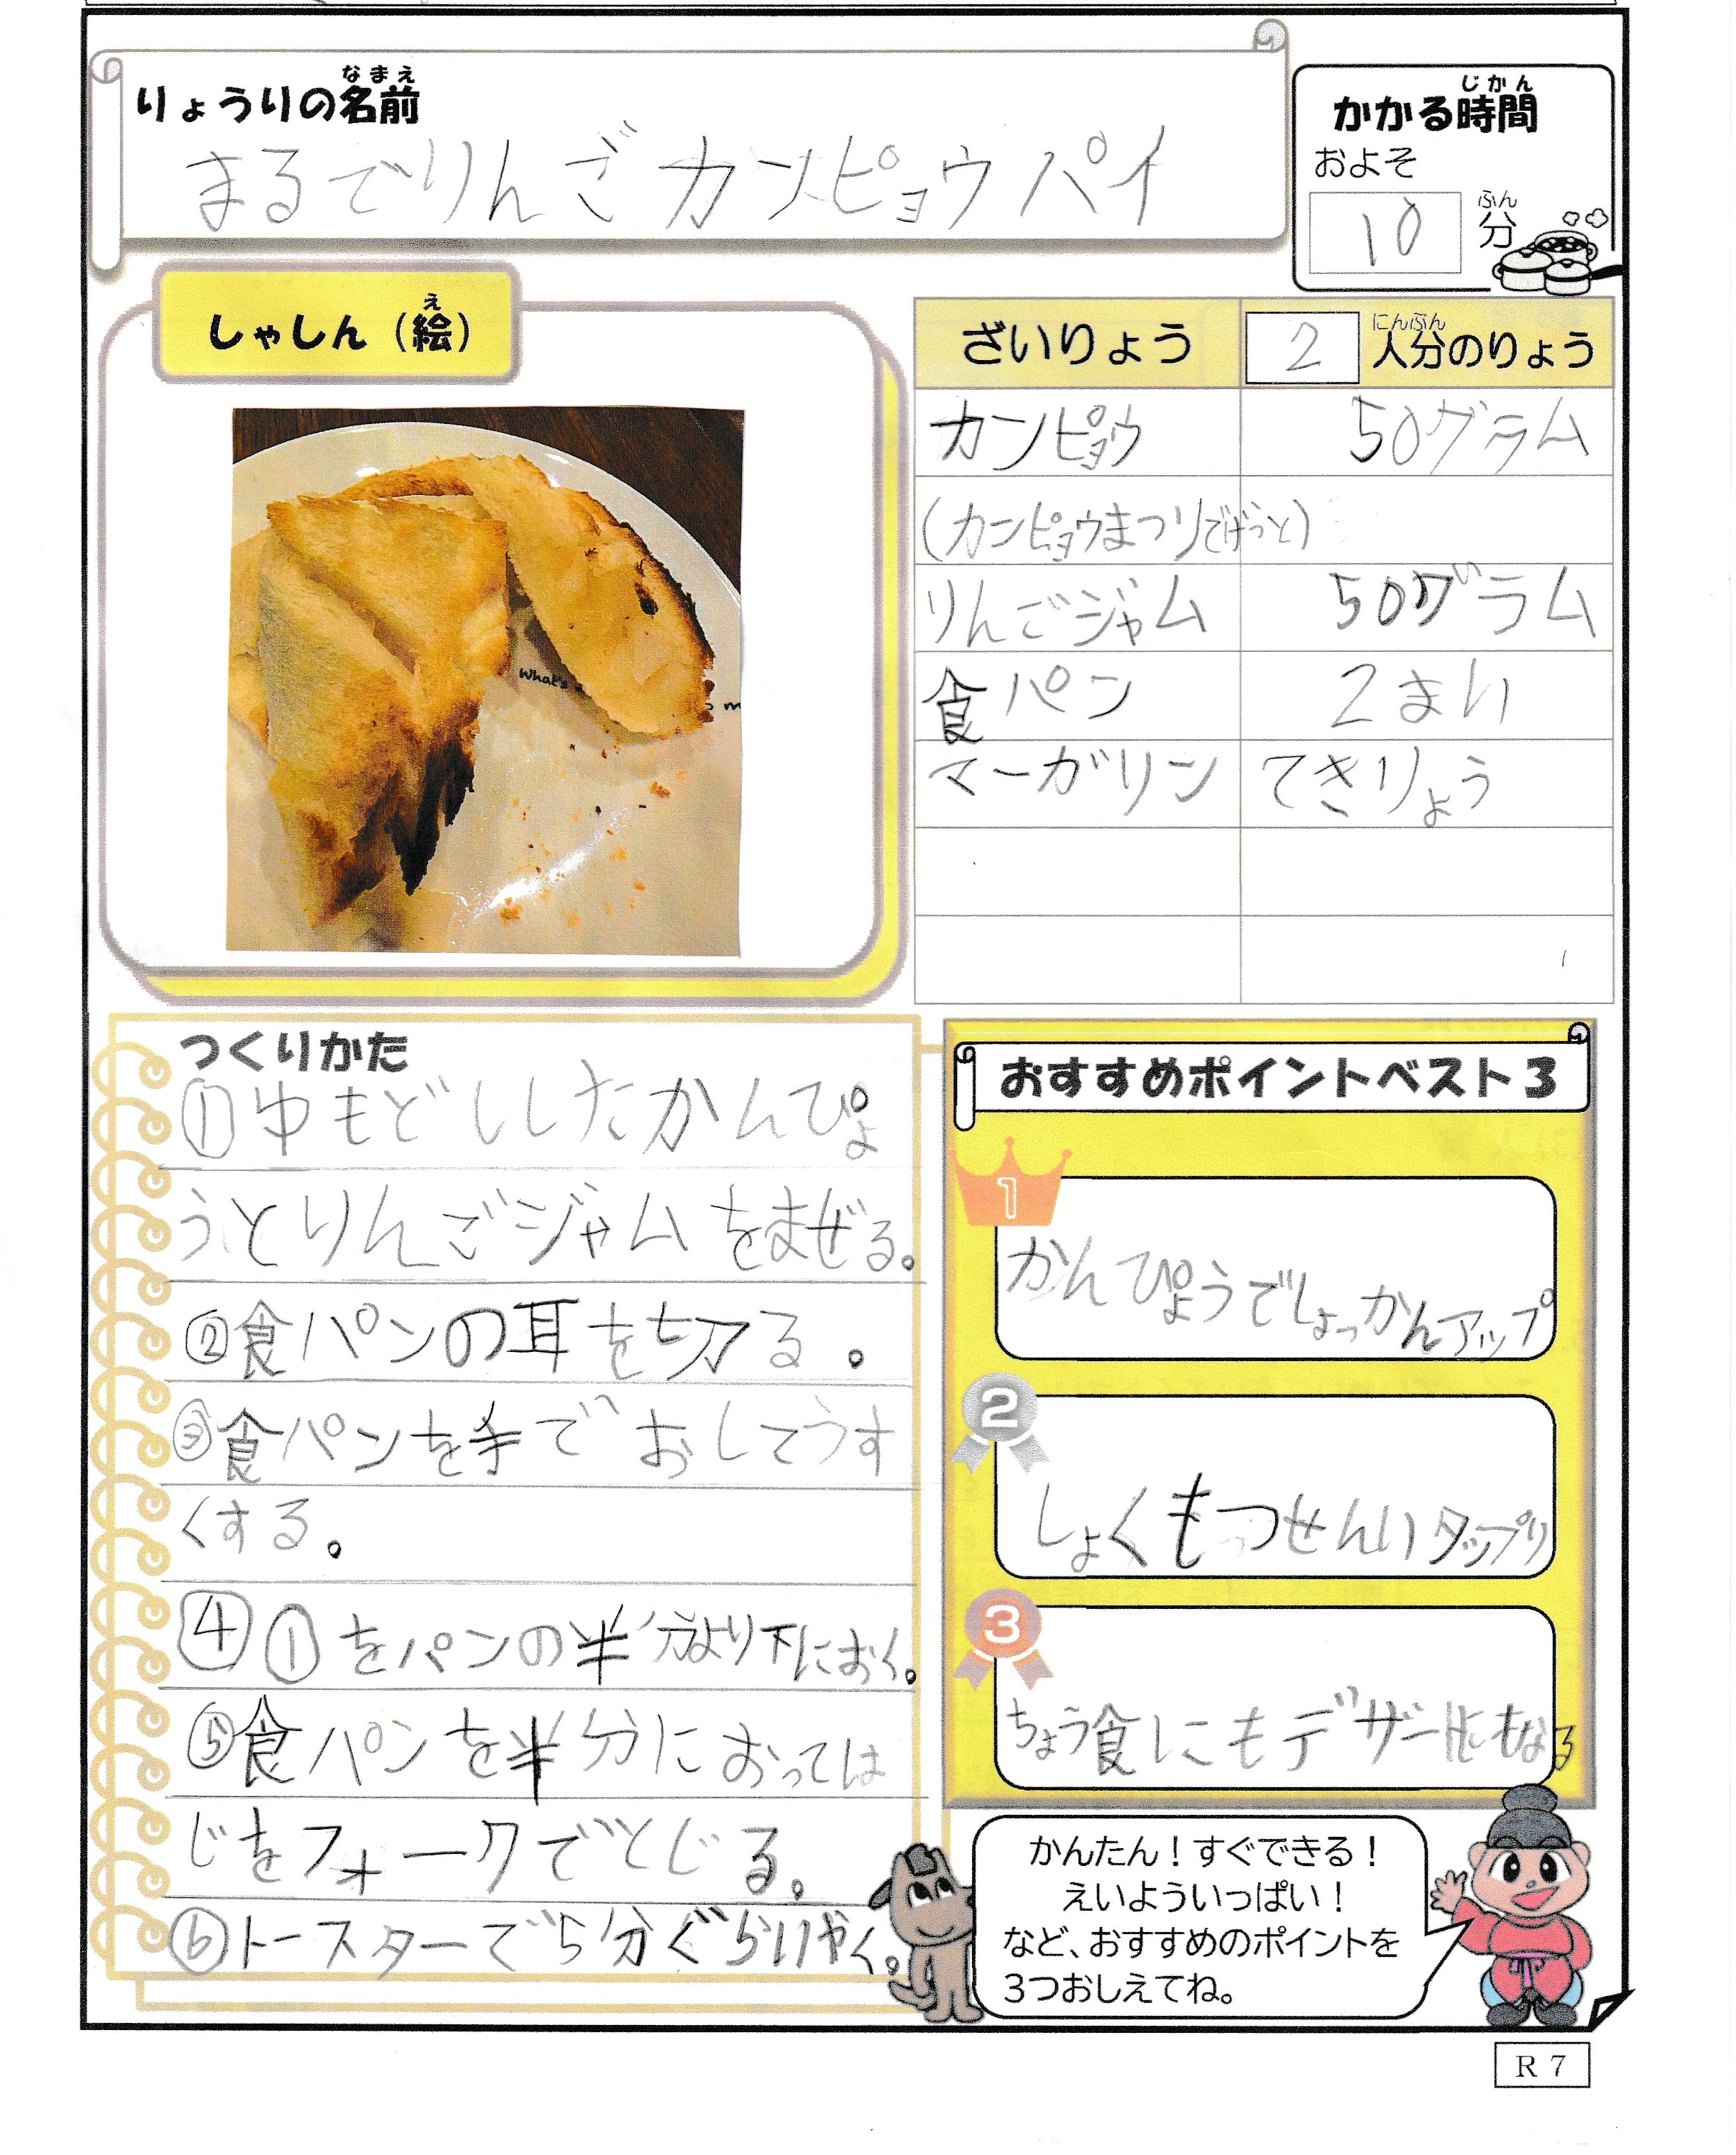 りょうりの名前
なまえ
まるでりんごカンピョウパイ
かかる時間
じかん
およそ
10
分
ふん
しゃしん（絵）
え
ざいりょう
2
人分のりょう
にんぶん
カンピョウ 50グラム
(カンピョウまつりでげっと)
りんごジャム 50グラム
食パン 2まい
マーガリン てきりょう
What's
つくりかた
①ゆもどししたかんぴょ
うとりんごジャムをまぜる。
②食パンの耳を切る。
③食パンを手でおしてうす
くする。
④①をパンの半分より下におく。
⑤食パンを半分におっては
じをフォークでとじる。
⑥トースターで5分ぐらいやく。
おすすめポイントベスト３
1
かんぴょうでしょっかんアップ
2
しょくもつせんいタップリ
3
ちょう食にもデザートにもなる
かんたん！すぐできる！
えいよういっぱい！
など、おすすめのポイントを
３つおしえてね。
R 7